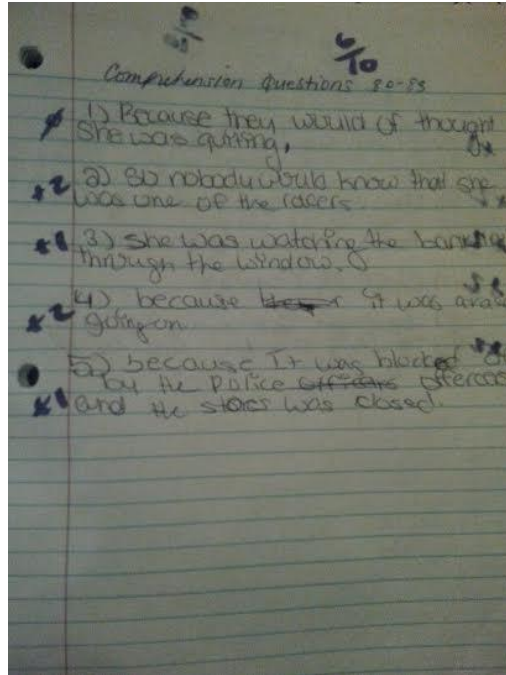 6/10
Comprehension Questions 80-83
1) Because they would of thought
She was quitting.
+2 2) So nobody would know that she
was one of the racers
+1 3) She was watching the
through the window.
+2 4) because it was a
going on
5) because It was blocked
+1 by the police
and the stores was closed.